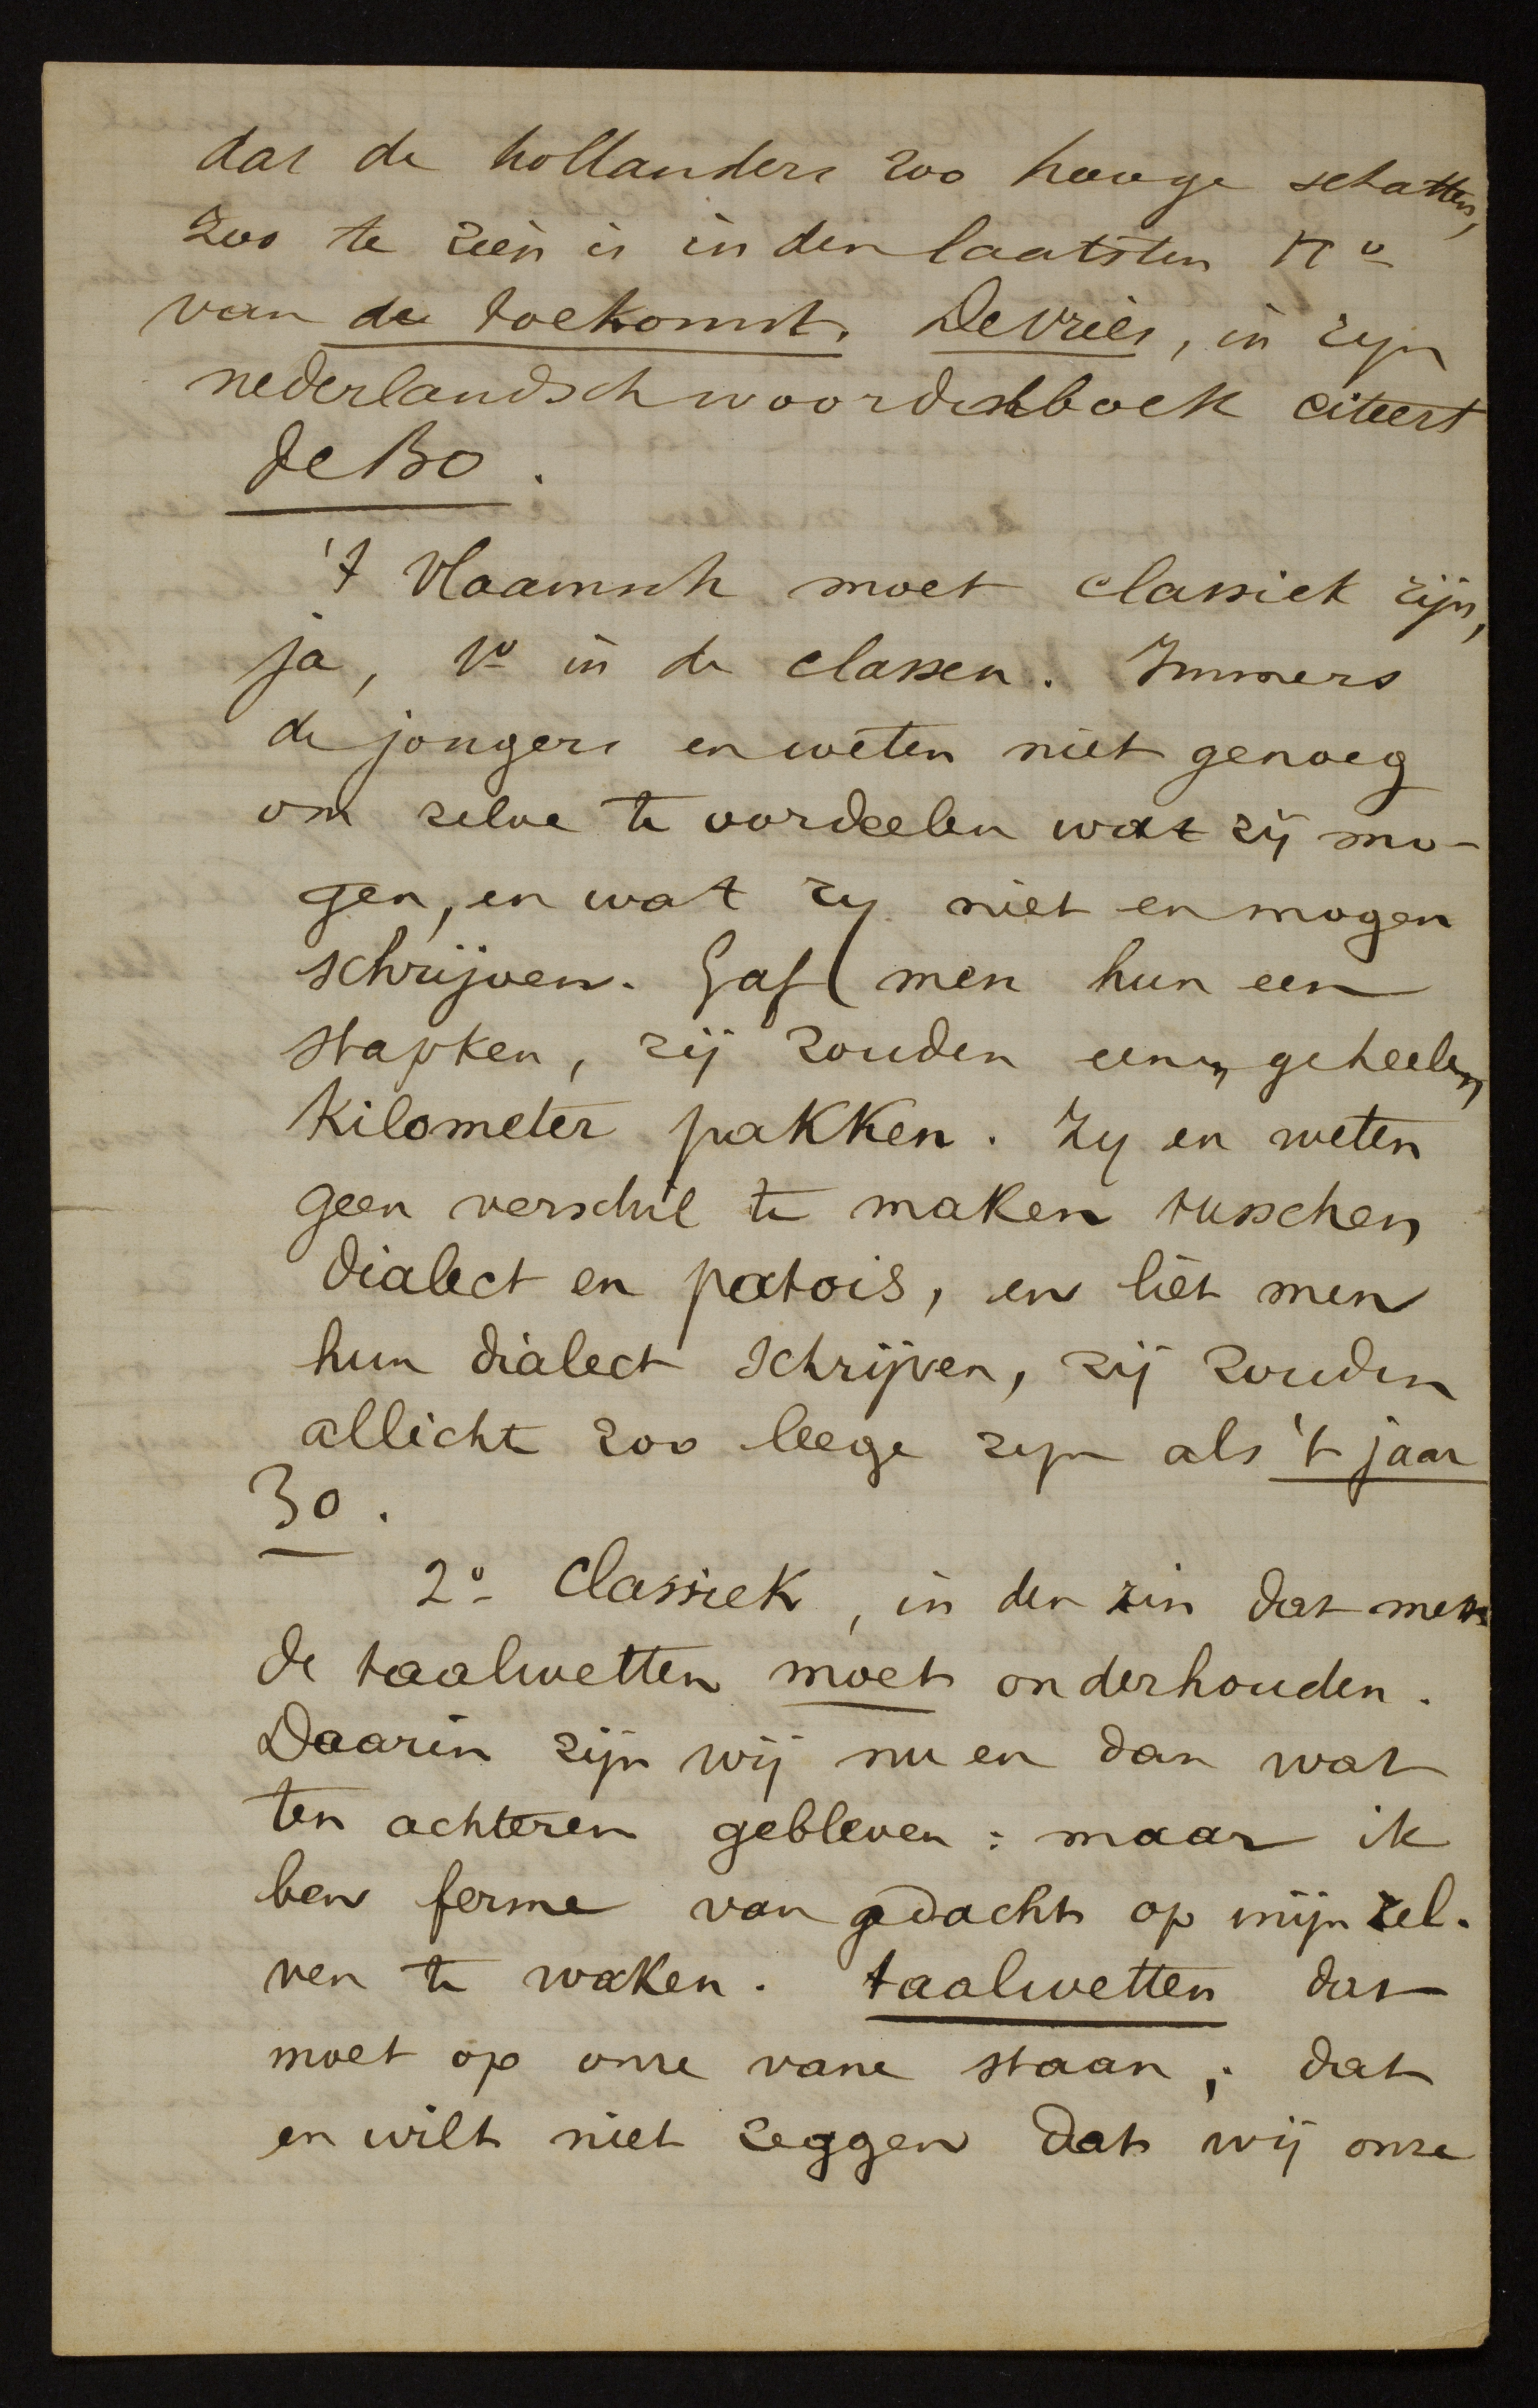 dat de hollanders zoo hooge schatten,
zoo te zien is in den laatsten No
van de toekomst. De Vries, in zyn
nederlandsch woordenboek citeert
De Bo.
't Vlaamsch moet classiek zijn,
ja, 1o in de classen. Immers
de jongers en weten niet genoeg
om zelve te oordeelen wat zij mo-
gen, en wat zy niet en mogen
schrijven. Gaf men hun een
stapken, zij zouden eenen geheelen
Kilometer pakken. Zy en weten
geen verschil te maken tusschen
dialect en patois, en liet men
hun dialect schrijven, zij zouden
allicht zoo leege zyn als 't jaar
30.
2o Classiek, in den zin dat men
de taalwetten moet onderhouden.
Daarin zijn wij nu en dan wat
ten achteren gebleven: maar ik
ben ferme van gedacht op mijn zel-
ven te waken. taalwetten dat
moet op onze vane staan; dat
en wilt niet zeggen dat wij onze